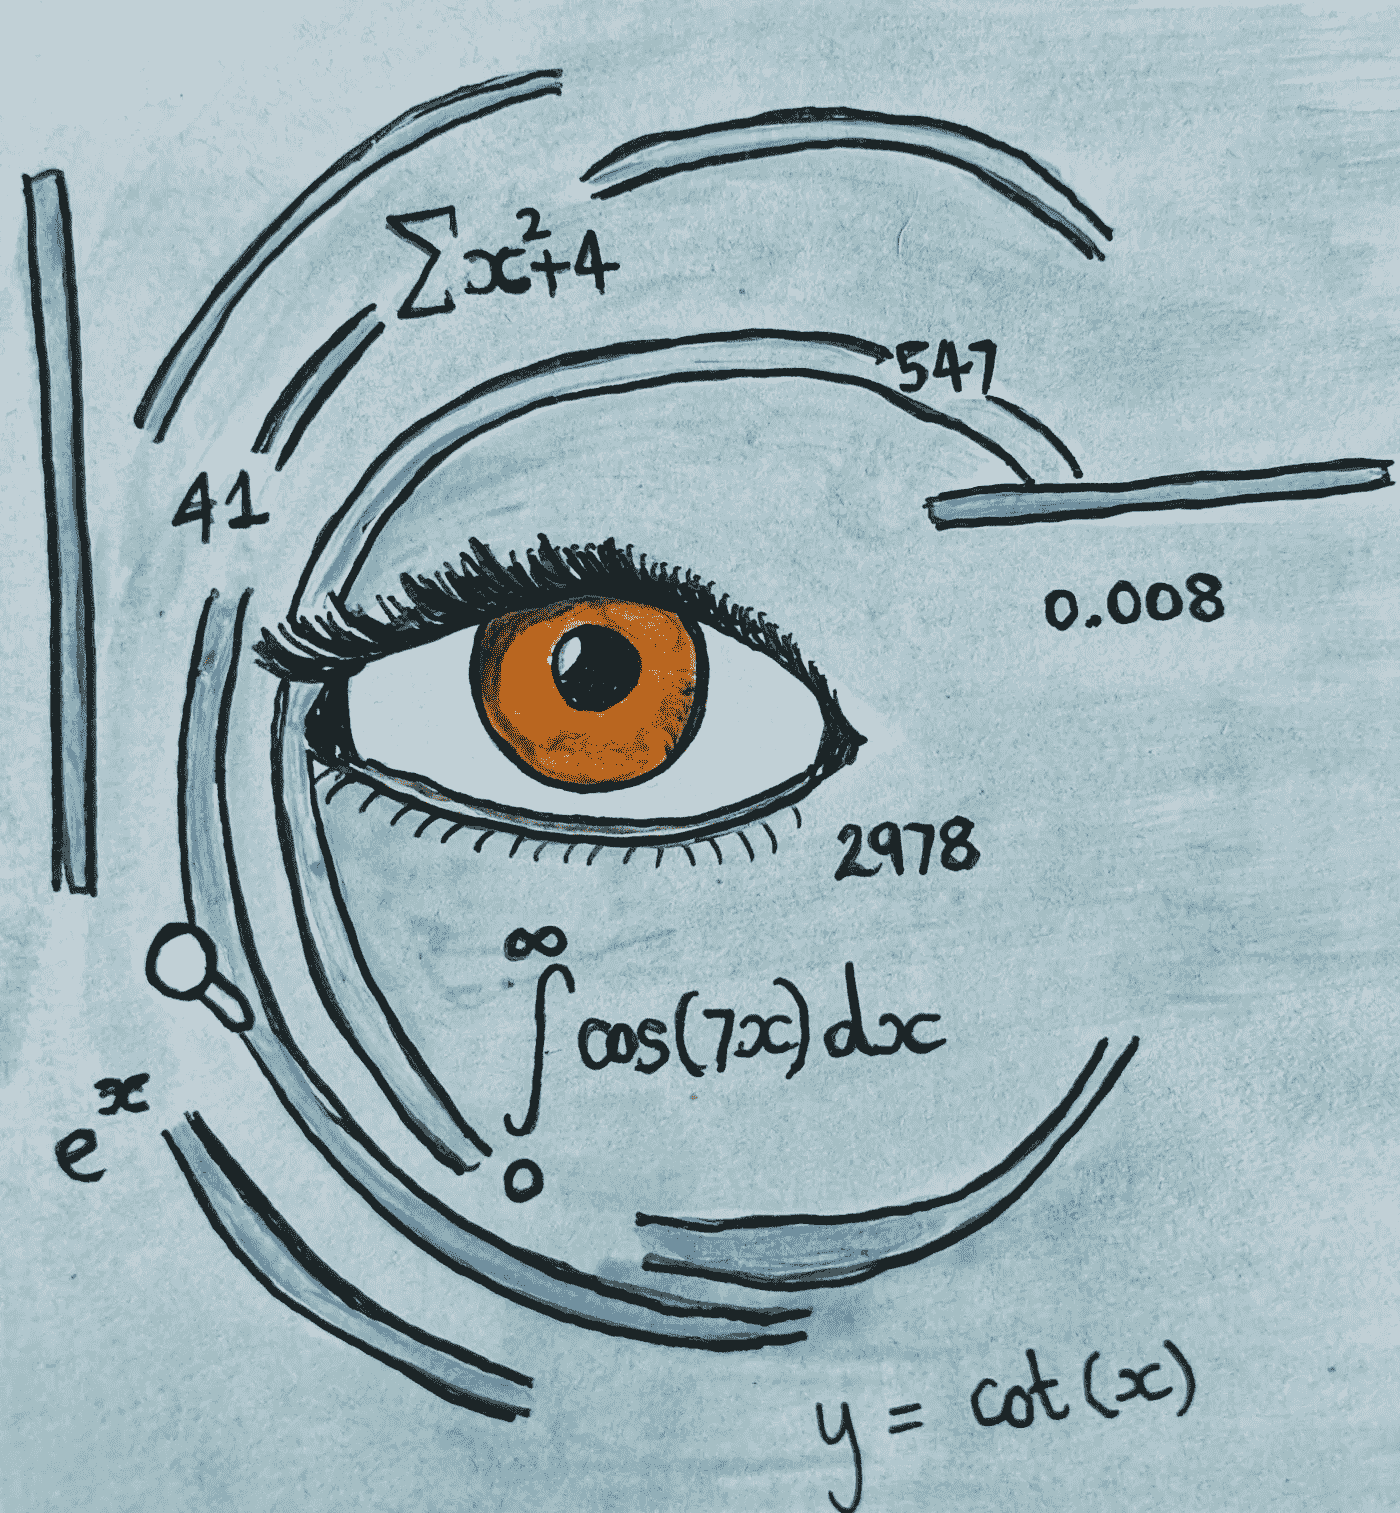 ∑x²+4
547
41
0.008
2978
∞
∫cos(7x)dx
0
eˣ
y = cot(x)